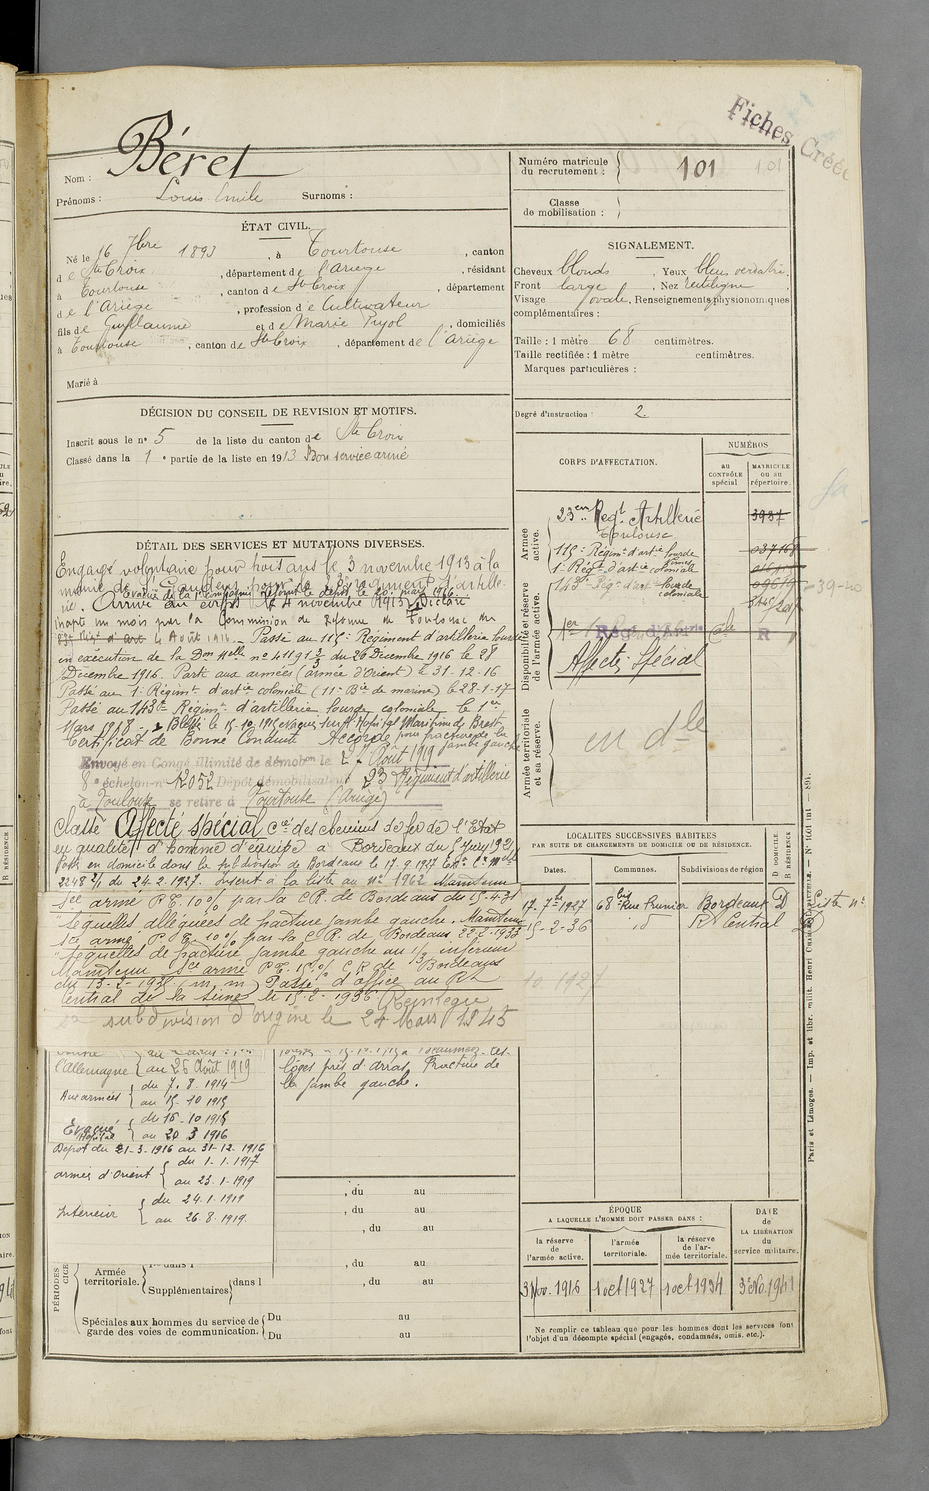 Fiches Créées
Nom : Béret
Prénoms : Louis Emile Surnoms :
Numéro matricule du recrutement : 101
Classe de mobilisation :
ÉTAT CIVIL.
Né le 16 7bre 1893, à Tourtouse, canton
de Ste Croix, département de l'Ariège, résidant
à Tourtouse, canton de Ste Croix, département
de l'Ariège, profession de Cultivateur
fils de Guillaume et de Marie Pujol, domiciliés
à Tourtouse, canton de Ste Croix, département de l'Ariège
Marié à
SIGNALEMENT.
Cheveux blonds. Yeux bleu verdatre.
Front large. Nez rectiligne
Visage ovale, Renseignements physionomiques
complémentaires :
Taille : 1 mètre 68 centimètres.
Taille rectifiée : 1 mètre centimètres.
Marques particulières :
Degré d'instruction : 2.
DÉCISION DU CONSEIL DE REVISION ET MOTIFS.
Inscrit sous le n° 5 de la liste du canton de Ste Croix
Classé dans la 1e partie de la liste en 1913 Bon service armé
DÉTAIL DES SERVICES ET MUTATIONS DIVERSES.
Engagé volontaire pour trois ans le 3 novembre 1913 à la
mairie de St Gaudens pour le 23e régiment d'artille-
rie. Arrivé au corps le 4 novembre 1913. Déclaré
inapte un mois par la Commission de réforme de Toulouse du
4 Août 1916. Passé au 115e Régiment d'artillerie lourde
en exécution de la Don Mlle no 41191 3/3 du 26 Décembre 1916 le 28
Décembre 1916. Parti aux armées (armée d'Orient) le 31-12-16
Passé au 1e Régimt d'artie coloniale (11e Bie de marine) le 28-1-17
Passé au 143e Régimt d'artillerie lourde coloniale le 1er
Mars 1918. Blessé le 15.10.1915 évacué Hôpital Maritime de Brest
pour fracture de la jambe gauche
Certificat de Bonne Conduite Accordé
Envoyé en Congé illimité de démobon le 27 Août 1919
8e échelon n° 12052 Dépôt démobilisateur 23 Régiment d'artillerie
à Toulouse se retire à Tourtouse (Ariège)
Classé Affecté spécial Cie des chemins de fer de l'Etat
en qualité d'homme d'équipe à Bordeaux du
en domicile dans la subdivision de Bordeaux le 17.9.1927
2248 2/1 du 24-2-1927. Inscrit à la liste au no 1962 Maintenu
Sce armé P.T. 10% par la C.R. de Bordeaux du 15-4-31
"séquelles alléguées de fracture jambe gauche. Maintenu
Sce armé P.T. 10% par la C.R. de Bordeaux 22-2-1933
"séquelles de fracture jambe gauche au 1/3 inférieur
Maintenu Sce armé P.T. 15% C.R. de Bordeaux
du 13-2-1935 (m. m) Passé d'office au R.
Central de la Seine le 15-2-1936. Réintégré
sa subdivision d'origine le 24 Mars 1945
CORPS D'AFFECTATION.
NUMÉROS
AU CONTRÔLE spécial
MATRICULE OU AU répertoire.
Armée active.
23e Regt Artillerie 3937
Toulouse
115e Régimt d'arte lourde
1e Régt d'artie coloniale
143e Régt d'art lourde coloniale
Disponibilité et réserve de l'armée active.
Régt d'Artie Cle R
Affecté Spécial
Armée territoriale et sa réserve.
en dlle
LOCALITÉS SUCCESSIVES HABITÉES
PAR SUITE DE CHANGEMENTS DE DOMICILE OU DE RÉSIDENCE.
Dates. Communes. Subdivisions de région D DOMICILE. R RÉSIDENCE
17. 7bre 1927 68 bis Rue Prunier Bordeaux D
15-2-36 id R Central D
10.1927
l'Allemagne au 26 Août 1919
Aux armées du 7.8.1914
au 15-10 1915
Evacué Hôpital du 16-10 1915
au 20 3 1916
Dépôt du 21-3-1916 au 31-12-1916
armée d'Orient du 1-1-1917
au 23-1-1919
Intérieur du 24.1.1919
au 26.8.1919.
loges près d'Arras. Fracture de
la jambe gauche.
, du au
, du au
, du au
, du au
PÉRIODES
Armée territoriale.
Supplémentaires dans l , du au
Spéciales aux hommes du service de garde des voies de communication.
Du au
Du au
ÉPOQUE
A LAQUELLE L'HOMME DOIT PASSER DANS :
DATE de LA LIBÉRATION du service militaire.
la réserve de l'armée active.
l'armée territoriale.
la réserve de l'armée territoriale.
3 Nov. 1916 1 oct 1927 1 oct 1934 3 No. 1941
Ne remplir ce tableau que pour les hommes dont les services font
l'objet d'un décompte spécial (engagés, condamnés, omis, etc.).
Paris et Limoges. — Imp. et libr. milit. Henri CHARLES-LAVAUZELLE.